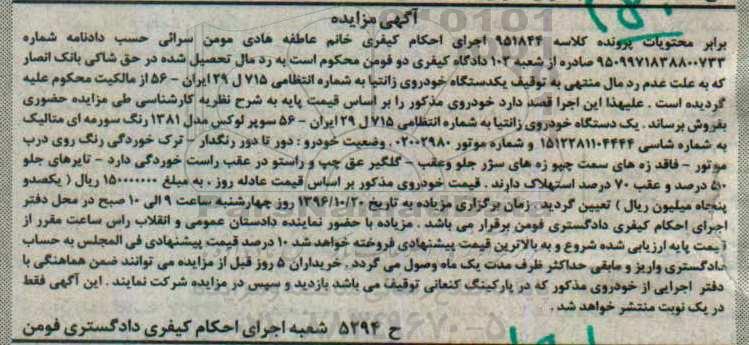 آگهی مزایده
برابر محتویات پرونده کلاسه ۹۵۱۸۴۴ اجرای احکام کیفری خانم عاطفه هادی مومن سرائی حسب دادنامه شماره
۹۵۰۹۹۷۱۸۳۸۸۰۰۷۳۳ صادره از شعبه ۱۰۲ دادگاه کیفری دو فومن محکوم است به رد مال تحصیل شده در حق شاکی بانک انصار
که به علت عدم رد مال منتهی به توقیف یکدستگاه خودروی زانتیا به شماره انتظامی ۷۱۵ ل ۲۹ ایران – ۵۶ از مالکیت محکوم علیه
گردیده است . علیهذا این اجرا قصد دارد خودروی مذکور را بر اساس قیمت پایه به شرح نظریه کارشناسی طی مزایده حضوری
بفروش برساند . یک دستگاه خودروی زانتیا به شماره انتظامی ۷۱۵ ل ۲۹ ایران – ۵۶ سوپر لوکس مدل ۱۳۸۱ رنگ سورمه ای متالیک
به شماره شاسی ۱۵۱۲۲۸۱۱۰۴۴۴۴ و شماره موتور ۰۲۰۰۲۹۸۰ . وضعیت خودرو : دور تا دور رنگدار – ترک خوردگی رنگ روی درب
موتور – فاقد زه های سمت چپ و زه های سپر جلو وعقب – گلگیر عق چپ و راستو در عقب راست خوردگی دارد – تایرهای جلو
۵۰ درصد و عقب ۷۰ درصد استهلاک دارند . قیمت خودروی مذکور بر اساس قیمت عادله روز ، به مبلغ ۱۵۰۰۰۰۰۰۰ ریال ( یکصدو
پنجاه میلیون ریال ) تعیین گردید . زمان برگزاری مزیاده به تاریخ ۱۳۹۶/۱۰/۲۰ روز چهارشنبه ساعت ۹ الی ۱۰ صبح در محل دفتر
اجرای احکام کیفری دادگستری فومن برقرار می باشد . مزیاده با حضور نماینده دادستان عمومی و انقلاب راس ساعت مقرر از
قیمت پایه ارزیابی شده شروع و به بالاترین قیمت پیشنهادی فروخته خواهد شد ۱۰ درصد قیمت پیشنهادی فی المجلس به حساب
دادگستری واریز و مابقی حداکثر ظرف مدت یک ماه وصول می گردد . خریداران ۵ روز قبل از مزایده می توانند ضمن هماهنگی با
دفتر اجرایی از خودروی مذکور که در پارکینگ کنعانی توقیف می باشد بازدید و سپس در مزایده شرکت نمایند . این آگهی فقط
در یک نوبت منتشر خواهد شد .
ح ۵۲۹۴ شعبه اجرای احکام کیفری دادگستری فومن